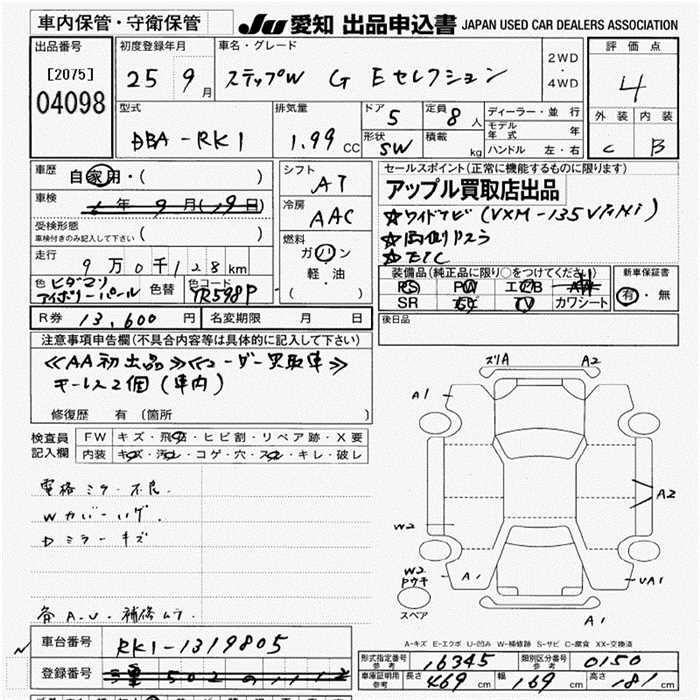 車内保管・守衛保管
JU 愛知 出品申込書 JAPAN USED CAR DEALERS ASSOCIATION
出品番号
[2075]
04098
初度登録年月
25 9月
車名・グレード
ステップW G Eセレクション
2WD
・
4WD
評価点
4
外装 内装
C B
型式
DBA-RK1
排気量
1.99 CC
ドア 5
定員 8人
形状 SW
積載 kg
ディーラー・並行
モデル年式 年
ハンドル 左・右
車歴
自家用・( )
車検
年 9月(19日)
受検形態
車検付きのみ記入して下さい ( )
走行
9万0千128km
色
アイボリーパール
色替
色コード
YR598P
シフト
AT
冷房
AAC
燃料
ガハン
軽・油
( )
セールスポイント(正常に機能するものに限ります)
アップル買取店出品
☆ワイドナビ(VXM-135VFNi)
☆両側Pスラ
☆ETC
装備品(純正品に限り○をつけてください)
PS PW エアB AW
SR TV カワシート
新車保証書
有・無
R券 13,600円
名変期限 月 日
後日品
注意事項申告欄(不具合内容等は具体的に記入して下さい)
≪AA初出品≫≪ユーザー買取車≫
キーレス2個(車内)
修復歴 有(箇所 )
検査員
記入欄
FW キズ・飛石・ヒビ割・リペア跡・X要
内装 キズ・汚れ・コゲ・穴・スレ・キレ・破レ
電格ミラー不良
Wカバーハゲ
Dミラーキズ
各A.U.補修ムラ
ズリA A2
A1
A2
W2
W2
Pウキ
A1
UA1
A1
スペア
A-キズ E-エクボ U-凹み W-補修跡 S-サビ C-腐食 XX-交換済
車台番号
RK1-1319805
登録番号
形式指定番号
参考
16345
類別区分番号
参考
0150
車庫証明用
参考
長さ 469cm 幅 169cm 高さ 181cm